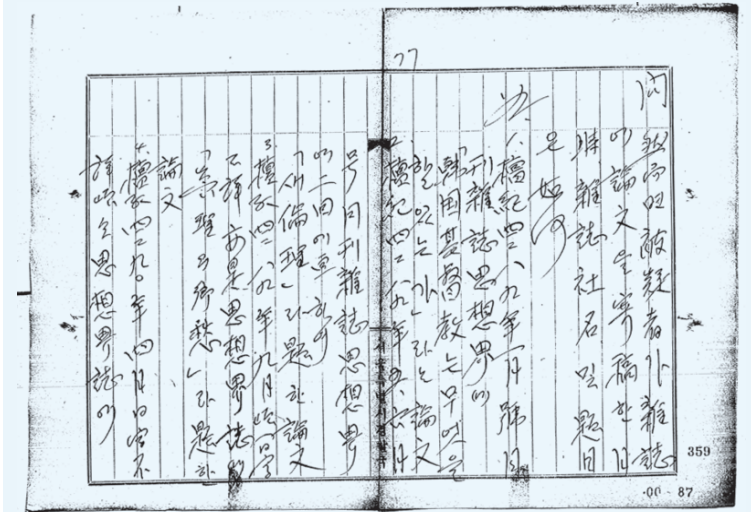 77
問 被疑者가 雜誌
에 論文을 寄稿한 日
時 雜誌社名 및 題目
은 如何
答 1. 檀紀四二八九年一月號 月
刊雜誌 思想界에
「韓国基督教는 무엇을
하고 있는가」라는 論文
2 檀紀四二八九年 五,六月
号 同刊雜誌 思想界
에 二回에 亘하여
「새倫理」라 題한 論文
3. 檀紀四二八九年九月 日字
不詳 亦是 思想界誌에
鄕愁」라 題한
論文
4. 檀紀四二九〇年四月 日字不
詳 思想界誌에
359
00 - 87